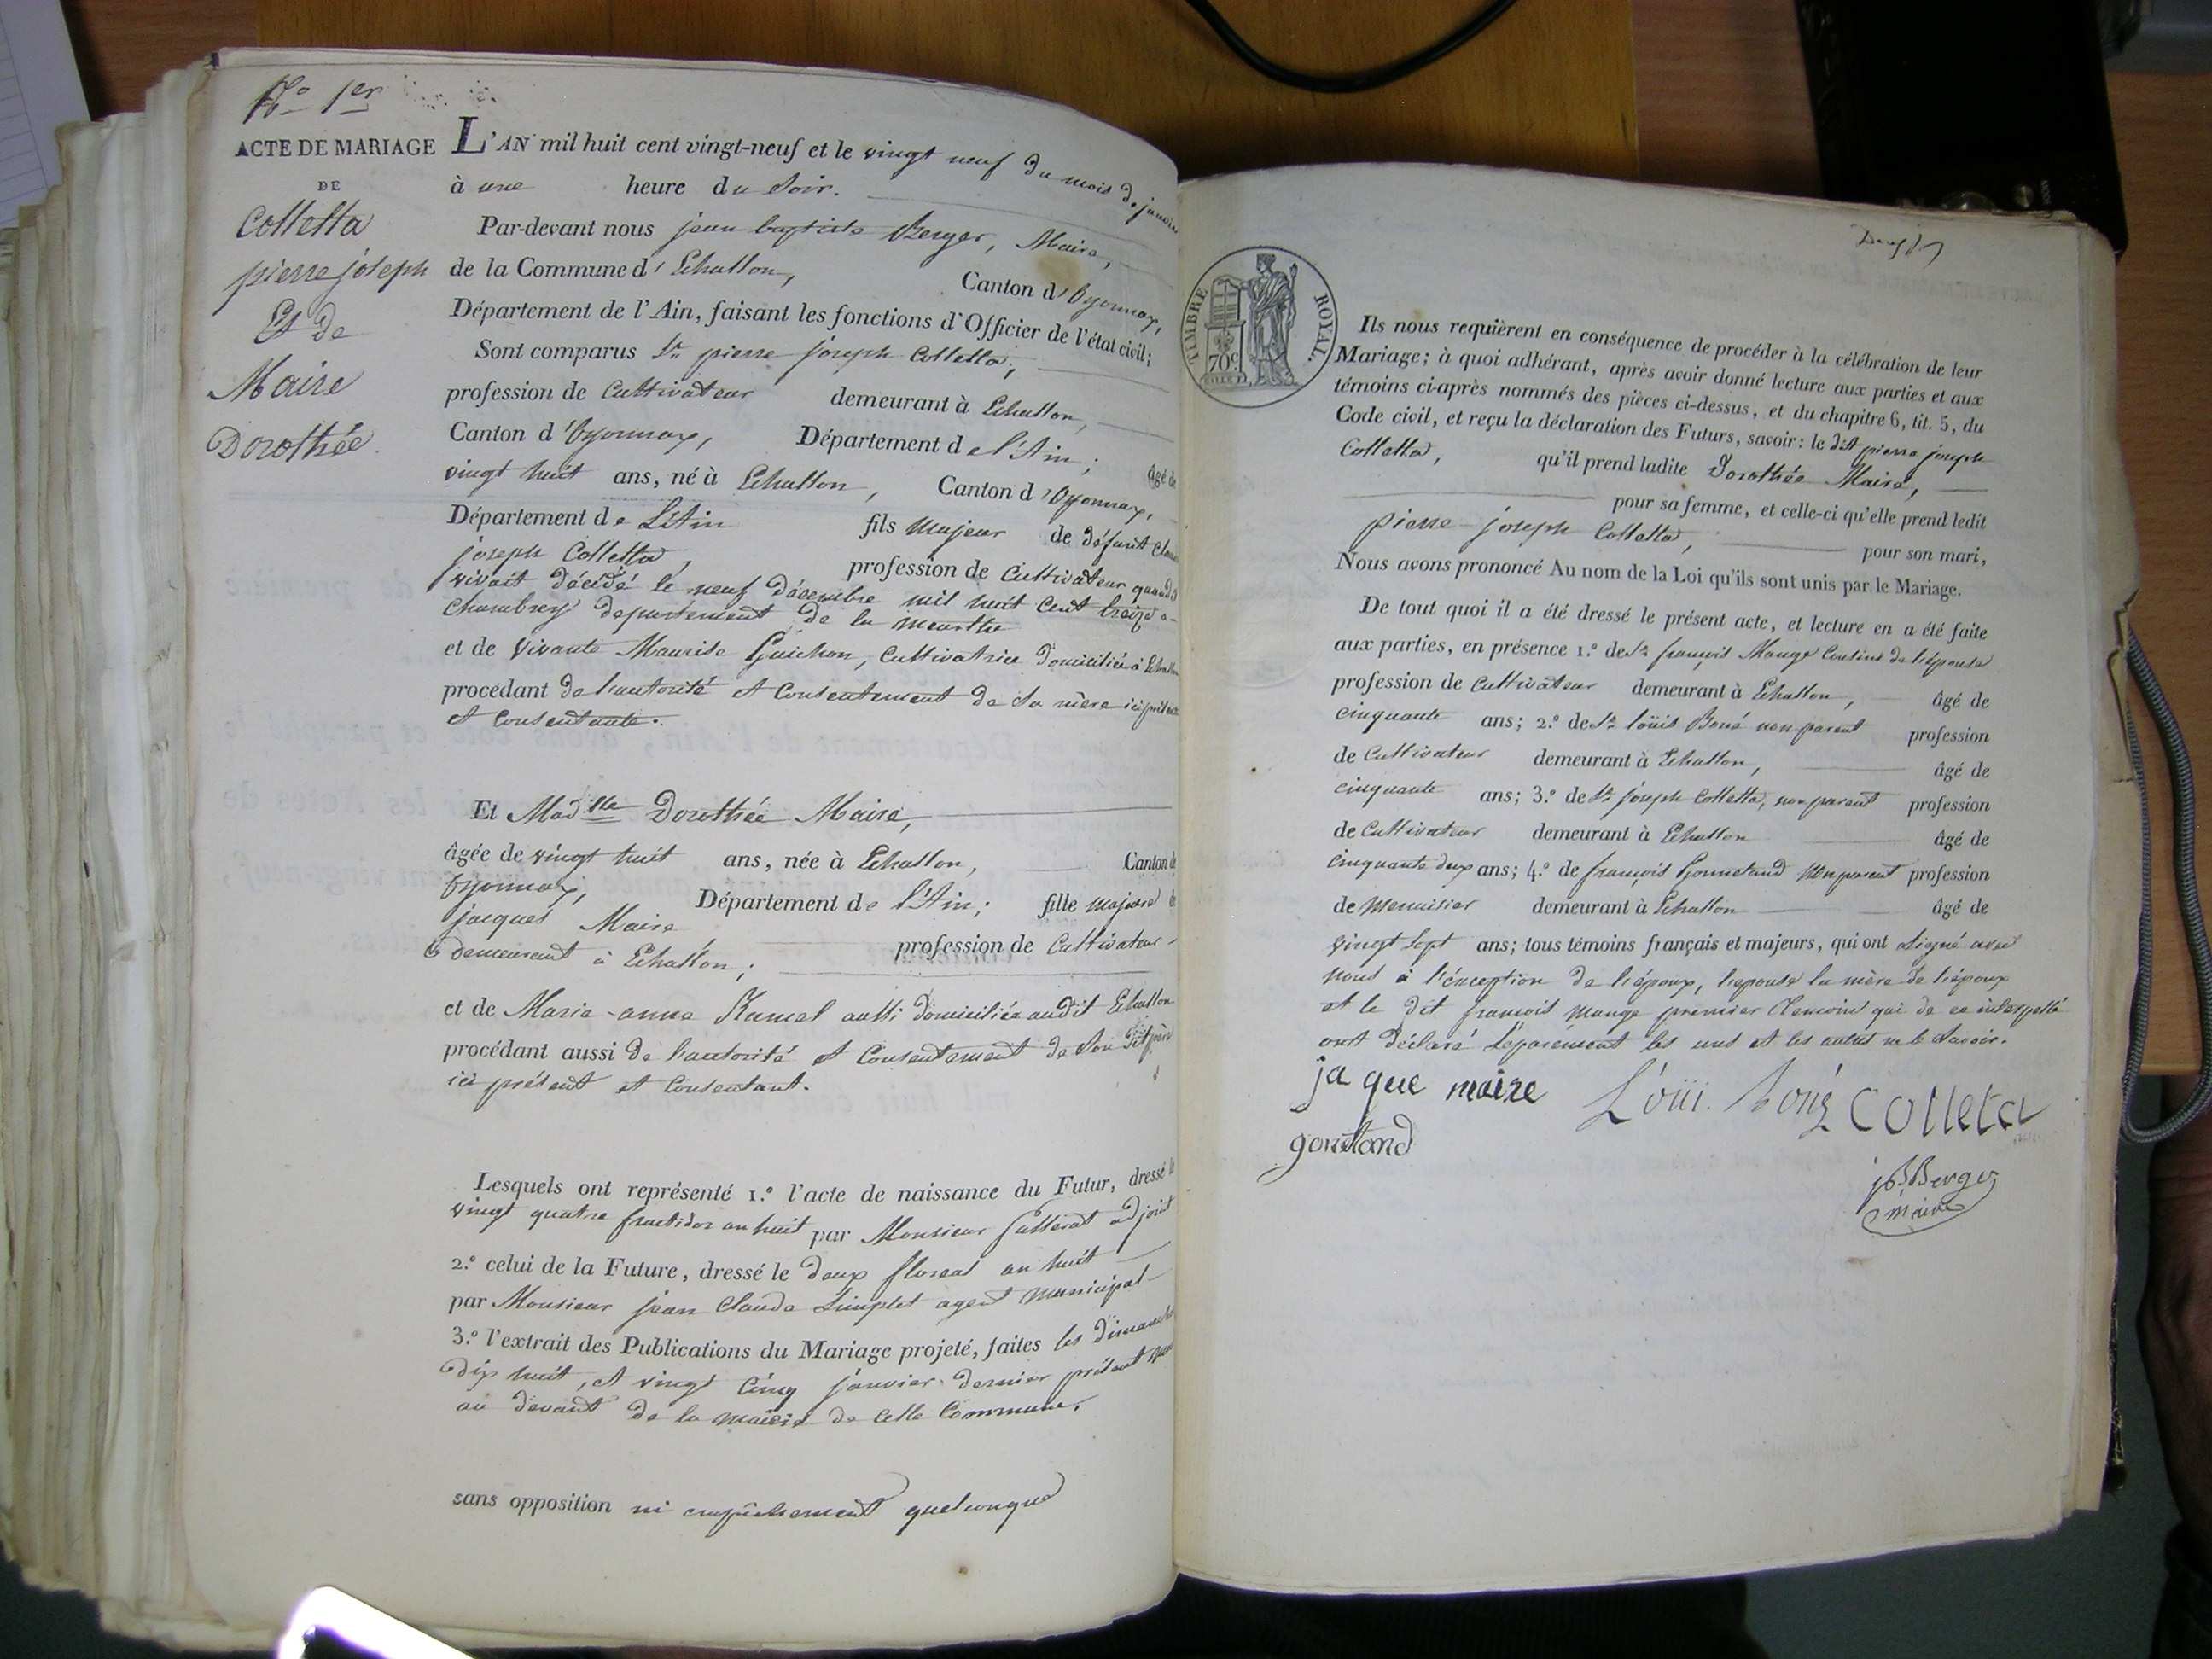 No 1er
ACTE DE MARIAGE
DE
Colletta
pierre joseph
Et de
Maire
Dorothée
L'AN mil huit cent vingt-neuf et le vingt neuf du mois de janvier
à une heure du Soir.
Par-devant nous jean baptiste Berger, Maire,
de la Commune d' Echallon, Canton d' Oyonnax,
Département de l'Ain, faisant les fonctions d'Officier de l'état civil;
Sont comparus Sr pierre joseph Colletta,
profession de Cultivateur demeurant à Echallon,
Canton d'Oyonnax, Département de l'Ain; âgé de
vingt huit ans, né à Echallon, Canton d'Oyonnax,
Département de L'Ain fils Majeur de défunt
joseph Colletta, profession de Cultivateur quand il
vivait décédé le neuf décembre mil huit cent treize a
Chambrey departement de la meurthe
et de vivante Maurise Guichon, Cultivatrice domiciliée à Echallon
procédant de l'autorité et Consentement de Sa mère ici présente
et Consentante.
Et Madlle Dorothée Maire,
âgée de vingt huit ans, née à Echallon, Canton de
Oyonnax, Département de l'Ain; fille majeure de
jacques Maire profession de Cultivateur
demeurant à Echallon;
et de Marie-anne aussi domiciliée audit Echallon
procédant aussi de l'autorité et Consentement de Son dit père
ici présent et Consentant.
Lesquels ont représenté 1.º l'acte de naissance du Futur, dressé le
vingt quatre fructidor an huit par Monsieur adjoint
2.º celui de la Future, dressé le deux floreal an huit
par Monsieur jean Claude agent Municipal
3.º l'extrait des Publications du Mariage projeté, faites les dimanches
dix huit, et vingt Cinq janvier dernier présent mois
au devant de la mairie de cette Commune.
sans opposition ni empêchement quelconque
TIMBRE ROYAL.
70c
Ils nous requièrent en conséquence de procéder à la célébration de leur
Mariage; à quoi adhérant, après avoir donné lecture aux parties et aux
témoins ci-après nommés des pièces ci-dessus, et du chapitre 6, tit. 5, du
Code civil, et reçu la déclaration des Futurs, savoir: le dit pierre joseph
Colletta, qu'il prend ladite Dorothée Maire,
pour sa femme, et celle-ci qu'elle prend ledit
pierre joseph Colletta, pour son mari,
Nous avons prononcé Au nom de la Loi qu'ils sont unis par le Mariage.
De tout quoi il a été dressé le présent acte, et lecture en a été faite
aux parties, en présence 1.º de Sr françois Mange Cousin de l'épouse
profession de Cultivateur demeurant à Echallon, âgé de
cinquante ans; 2.º de Sr loüis Boné non parent profession
de Cultivateur demeurant à Echallon, âgé de
cinquante ans; 3.º de Sr joseph Colletta, non parent profession
de Cultivateur demeurant à Echallon âgé de
cinquante deux ans; 4.º de françois Gonnetand Non parent profession
de Menuisier demeurant à Echallon âgé de
vingt Sept ans; tous témoins français et majeurs, qui ont Signé avec
nous à l'éxception de l'époux, l'epouse la mère de l'époux
et le dit françois Mange premier temoin qui de ce interpellé
ont déclaré Séparément les uns et les autres ne le Savoir.
ja que maire Loüi. Boné Colleta
gonetand
jB Berger
maire